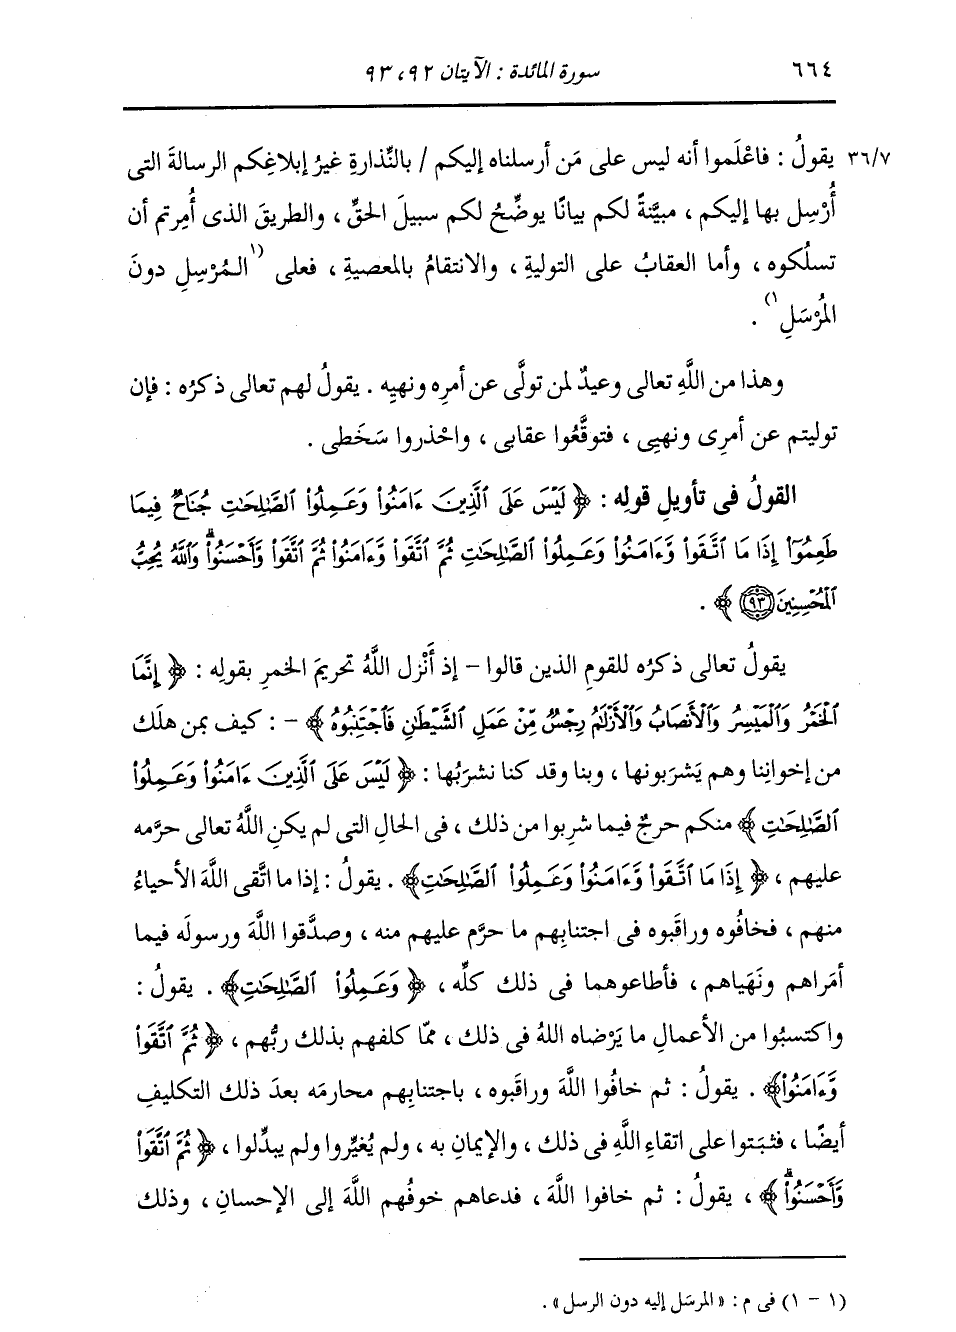 ٦٦٤ سورة المائدة : الآيتان ٩٢، ٩٣
٣٦/٧ يقولُ : فاعْلَموا أنه ليس على مَن أرسلناه إليكم / بالنِّذارةِ غيرُ إبلاغِكم الرسالةَ التى
أُرْسِل بها إليكم ، مبيَّنةً لكم بيانًا يوضِّحُ لكم سبيلَ الحقِّ ، والطريقَ الذى أُمِرتم أن
تسلُكوه ، وأما العقابُ على التوليةِ ، والانتقامُ بالمعصيةِ ، فعلى (١المُرْسِلِ دونَ
المُرْسَلِ١) .
وهذا من اللَّهِ تعالى وعيدٌ لمن تولَّى عن أمرِه ونهيِه . يقولُ لهم تعالى ذكرُه : فإن
توليتم عن أمرِى ونهيِى ، فتوقَّعُوا عقابى ، واحْذروا سَخَطى .
القولُ فى تأويلِ قولِه : ﴿ لَيْسَ عَلَى ٱلَّذِينَ ءَامَنُوا۟ وَعَمِلُوا۟ ٱلصَّٰلِحَٰتِ جُنَاحٌ فِيمَا
طَعِمُوٓا۟ إِذَا مَا ٱتَّقَوا۟ وَّءَامَنُوا۟ وَعَمِلُوا۟ ٱلصَّٰلِحَٰتِ ثُمَّ ٱتَّقَوا۟ وَّءَامَنُوا۟ ثُمَّ ٱتَّقَوا۟ وَّأَحْسَنُوا۟ۗ وَٱللَّهُ يُحِبُّ
ٱلْمُحْسِنِينَ ٩٣ ﴾ .
يقولُ تعالى ذكرُه للقومِ الذين قالوا - إذ أَنْزل اللَّهُ تحريمَ الخمرِ بقولِه : ﴿ إِنَّمَا
ٱلْخَمْرُ وَٱلْمَيْسِرُ وَٱلْأَنصَابُ وَٱلْأَزْلَٰمُ رِجْسٌ مِّنْ عَمَلِ ٱلشَّيْطَٰنِ فَٱجْتَنِبُوهُ ﴾ - : كيف بمن هلَك
من إخوانِنا وهم يَشرَبونها ، وبنا وقد كنا نشرَبُها : ﴿ لَيْسَ عَلَى ٱلَّذِينَ ءَامَنُوا۟ وَعَمِلُوا۟
ٱلصَّٰلِحَٰتِ ﴾ منكم حرجٌ فيما شرِبوا من ذلك ، فى الحالِ التى لم يكنِ اللَّهُ تعالى حرَّمه
عليهم ، ﴿ إِذَا مَا ٱتَّقَوا۟ وَّءَامَنُوا۟ وَعَمِلُوا۟ ٱلصَّٰلِحَٰتِ﴾ . يقولُ : إذا ما اتَّقى اللَّهَ الأحياءُ
منهم ، فخافُوه وراقَبوه فى اجتنابِهم ما حرَّم عليهم منه ، وصدَّقوا اللَّهَ ورسولَه فيما
أمَراهم ونَهَياهم ، فأطاعوهما فى ذلك كلِّه ، ﴿ وَعَمِلُوا۟ ٱلصَّٰلِحَٰتِ﴾ . يقولُ :
واكتسبُوا من الأعمالِ ما يَرْضاه اللهُ فى ذلك ، ممّا كلفهم بذلك ربُّهم ، ﴿ ثُمَّ ٱتَّقَوا۟
وَّءَامَنُوا۟﴾ . يقولُ : ثم خافُوا اللَّهَ وراقَبوه ، باجتنابِهم محارمَه بعدَ ذلك التكليفِ
أيضًا ، فثبَتوا على اتقاءِ اللَّهِ فى ذلك ، والإيمانِ به ، ولم يُغيِّروا ولم يبدِّلوا ، ﴿ ثُمَّ ٱتَّقَوا۟
وَّأَحْسَنُوا۟ۗ ﴾ ، يقولُ : ثم خافوا اللَّهَ ، فدعاهم خوفُهم اللَّهَ إلى الإحسانِ ، وذلك
(١ - ١) فى م : « المرسَل إليه دون الرسل » .